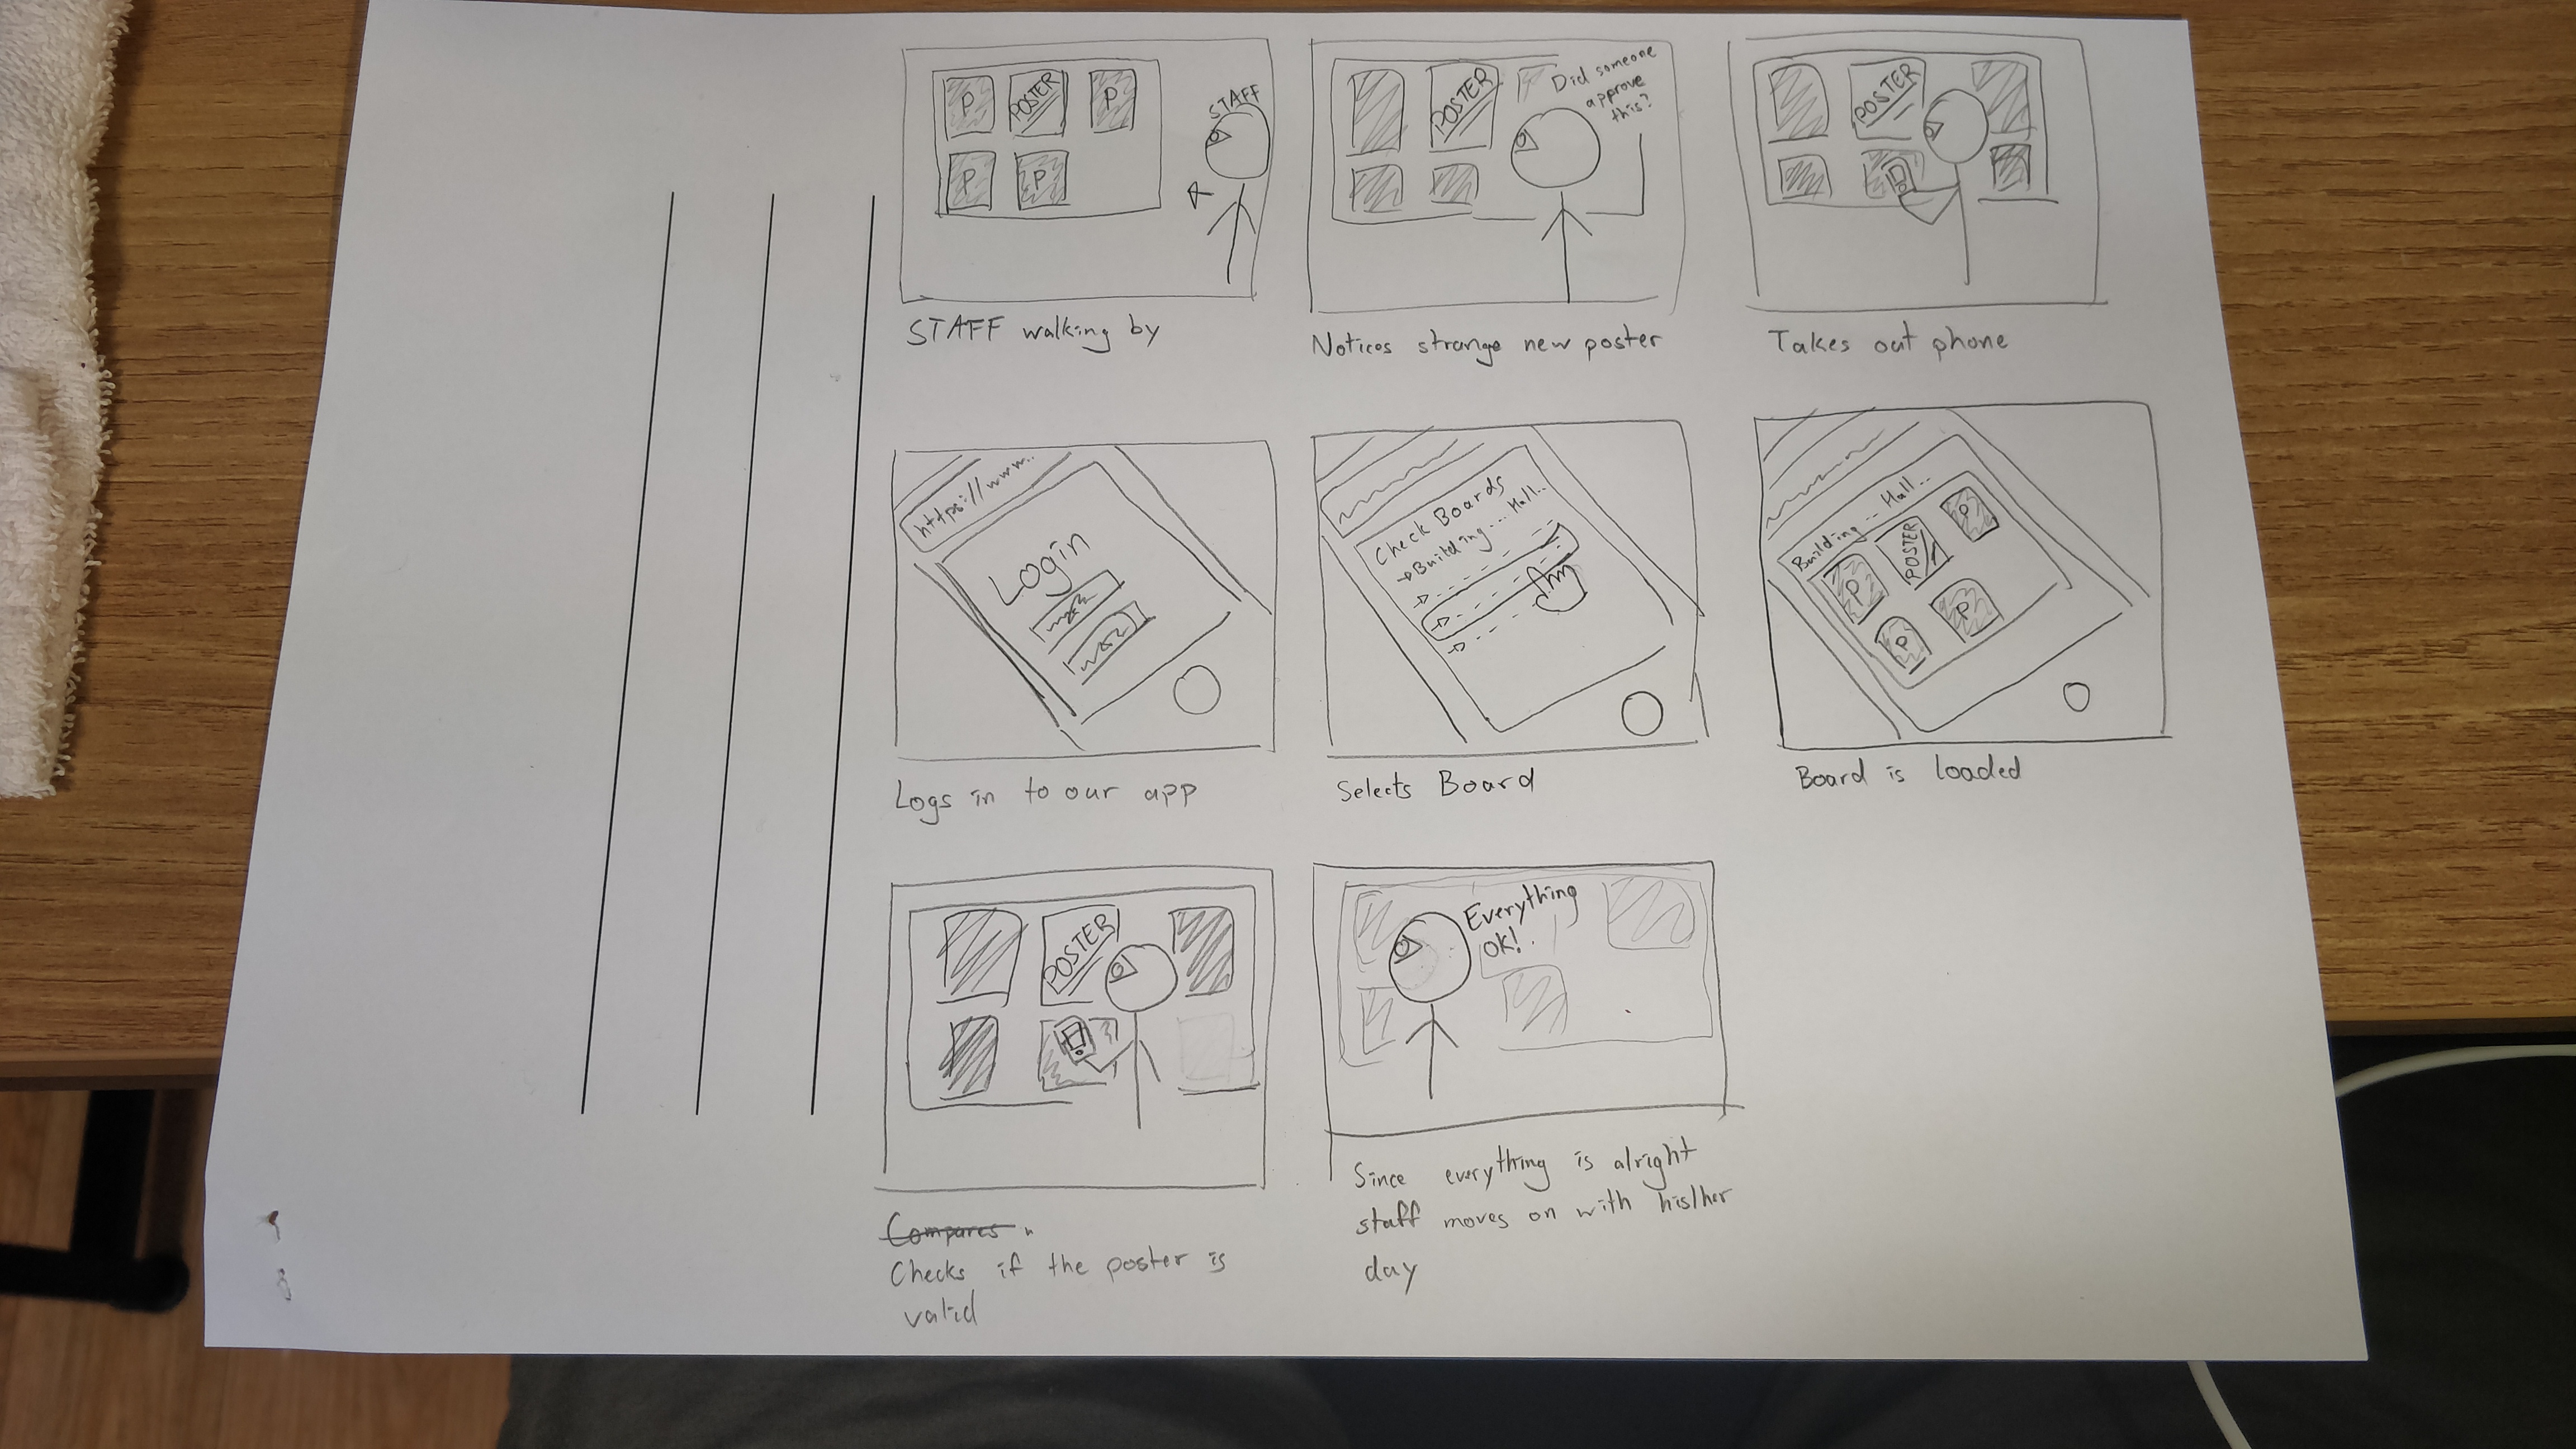 P
POSTER
P
P
P
STAFF
STAFF walking by
POSTER
Did someone
approve
this?
Notices strange new poster
POSTER
Takes out phone
https://www..
Login
Logs in to our app
Check Boards
Building ... Hall..
Selects Board
Building ... Hall...
P
POSTER
P
P
P
Board is loaded
POSTER
Compares
Checks if the poster is
valid
Everything
OK!
Since everything is alright
staff moves on with his/her
day